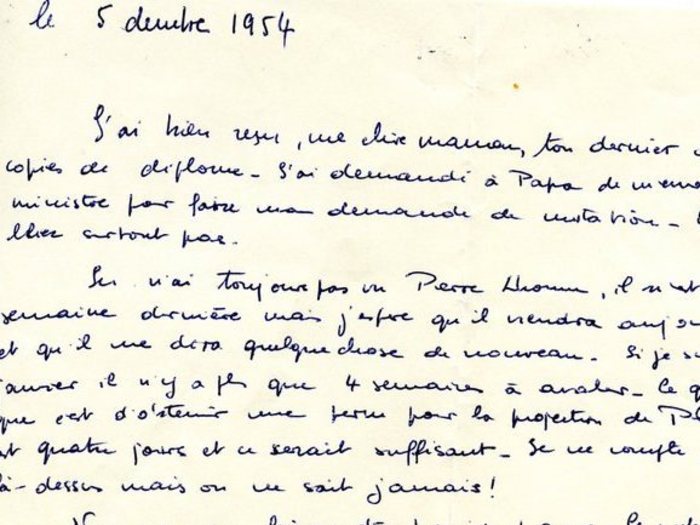 le 5 décembre 1954
J'ai bien reçu, ma chère maman, ton dernier
copies de diplome - J'ai demandé à Papa de m'env
ministre pour faire ma demande de mutation -
surtout pas.
Je n'ai toujours pas vu Pierre Lhomme, il n'est
semaine dernière mais j'espère qu'il viendra aujou
et qu'il me dira quelque chose de nouveau - Si je s
janvier il n'y a plus que 4 semaines à avaler - Ce q
que c'est d'obtenir une perm pour la projection de P
quatre jours et ce serait suffisant - Je ne compte
là-dessus mais on ne sait jamais !